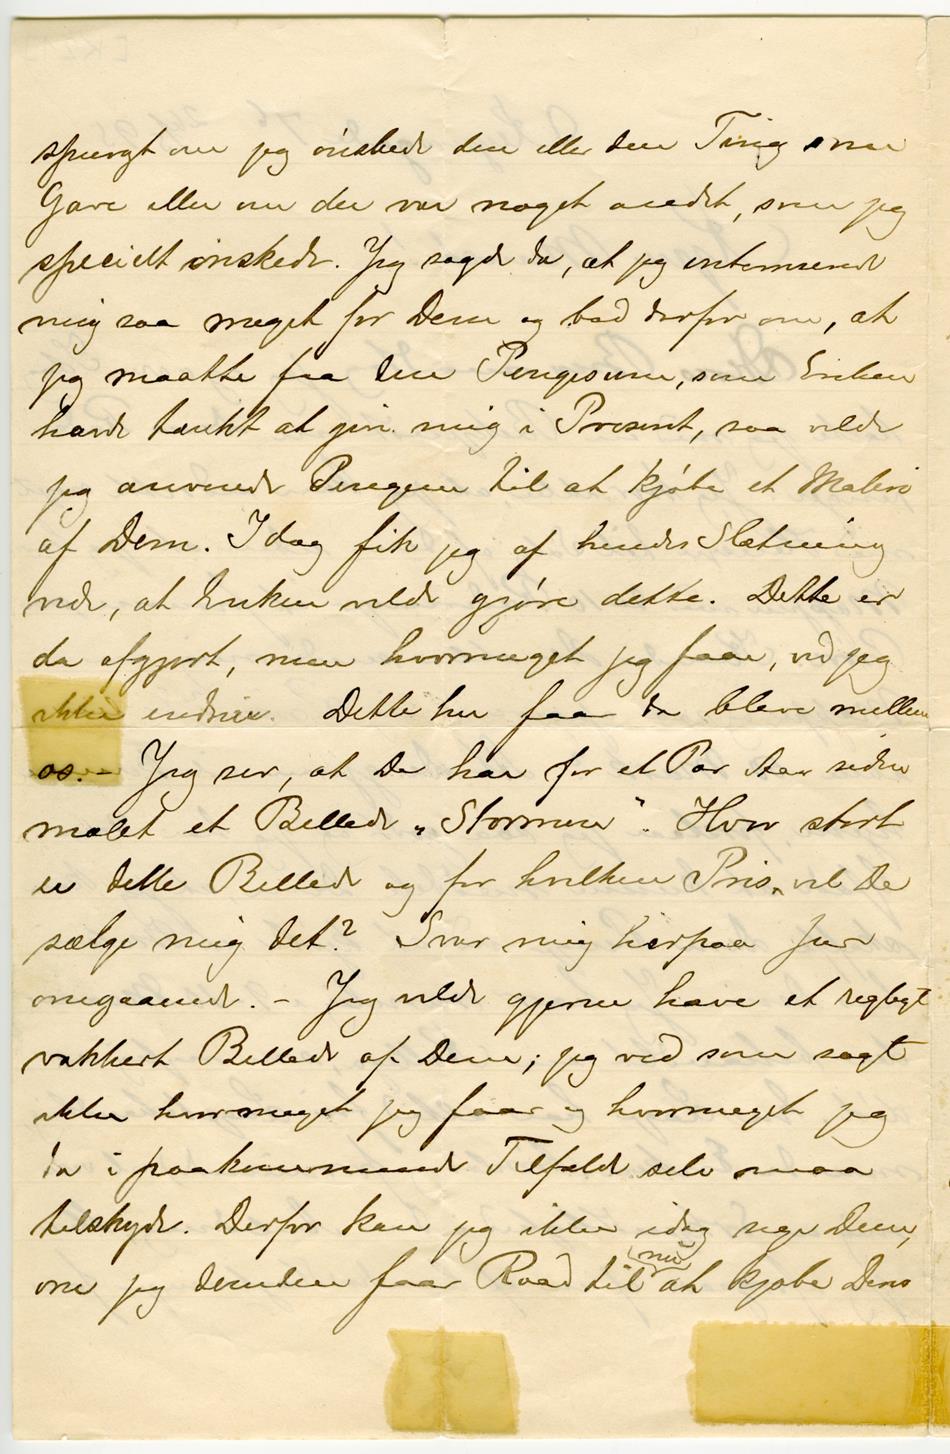 spurgt om jeg ønskede den eller den Ting som
Gave eller om der var noget andet, som jeg
specielt ønskede. Jeg sagde da, at jeg interesserede
mig saa meget for Dem og bad derfor om, at
jeg maatte faa den Pengesum, som Enken
havde tænkt at give mig i Present, saa vilde
jeg anvende Pengene til at kjøbe et Maleri
af Dem. Idag fik jeg af hendes Slægtning
vide, at Enken vilde gjøre dette. Dette er
da afgjort, men hvormeget jeg faar, ved jeg
ikke endnu. Dette her faar da blive mellem
os. – Jeg ser, at De har for et Par Aar siden
malet et Billede „Stormen". Hvor stort
er dette Billede og for hvilken Pris vil De
sælge mig det? Svar mig herpaa
omgaaende. – Jeg vilde gjerne have et rigtigt
vakkert Billede af Dem; jeg ved som sagt
ikke hvormeget jeg faar og hvormeget jeg
da i paakommende Tilfælde selv maa
tilskyde. Derfor kan jeg ikke idag sige Dem,
om jeg desuden faar Raad til nu at kjøbe Deres